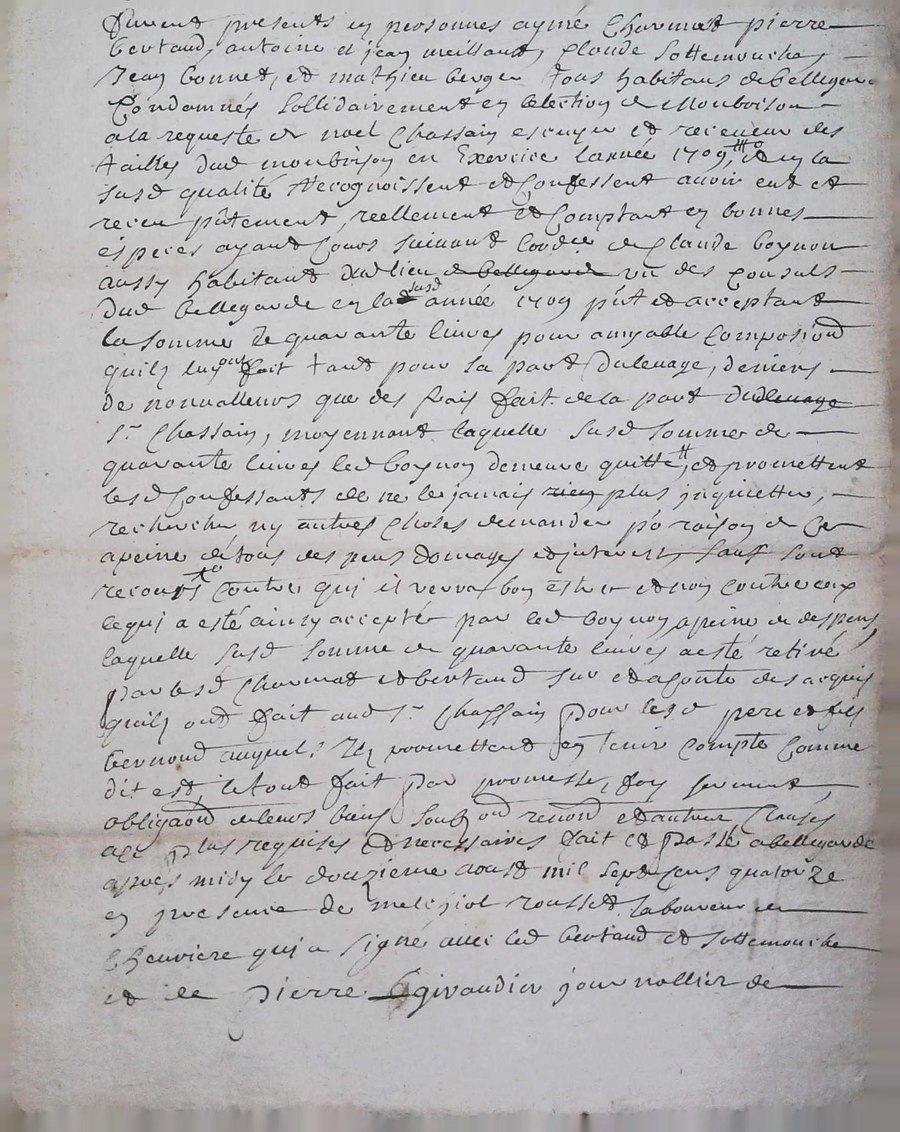 furent presents en personnes aymé Charmat pierre
bertaud, antoine et jean meilland, Claude Sottemouche,
Jean bonnet, et mathieu berger tous habitans de bellegarde
Condamnés Sollidairement en Lelection de Monbrison
a la requeste de noel Chassain escuyer et receveur des
tailles dud monbrison en Exercice lannée 1709, et en la
susd qualité Recognoissent et Confessent avoir eut et
receu pntement, reellement et Comptant en bonnes
espéces ayant Cours suivant lordce de Claude boynon
aussy habitant dud lieu de bellegarde un des Consuls
dud bellegarde en la susd année 1709 pnt et acceptant
la somme de quarante livres pour amyable Composiond
quils luy ont fait tant pour la part du levage, deniers
de nonvalleurs que des frais fait de la part dud levage
Sr Chassain, moyennant laquelle susd somme de
quarante livres led boynon demeure quitte, et promettent
lesd Confessants de ne le jamais rien plus inquietter,
rechercher ny autres Choses demander po raison de Ce
a peine de tous despens domages et interests, sauf sond
recours Contre qui il verra bon estre et non contre eux
le qui a esté ainsy accepté par led boynon a peine de despens,
laquelle susd somme de quarante livres a esté retiré
par lesd Charmat et bertaud sur et a Conte des acquis
quils ont fait aud Sr Chassain pour lesd pere et fils
bernond auquel Ilz promettent en tenir compte comme
dit est, le tout fait par promesse, foy serment,
obligaond de leurs biens Soubz ond renond et autres Clauses
a ce plus requises et necessaires fait et passé a bellegarde
apres midy le douzieme aoust mil sept Cens quatorze
en presence de melchiol rousset laboureur de
Cheuviere qui a signé avec led bertaud et Sottemouche
et de pierre giraudier journallier de